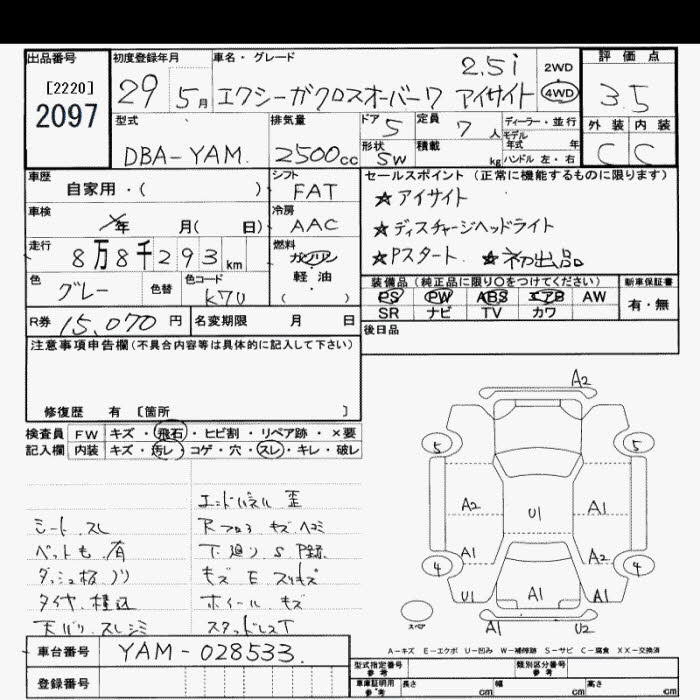 出品番号
[2220]
2097
初度登録年月
29 5月
車名・グレード
2.5i
エクシーガクロスオーバー7 アイサイト
2WD
4WD
評価点
3.5
外装 内装
C C
型式
DBA-YAM
排気量
2500cc
ドア 5
定員 7人
形状 SW
積載 kg
ディーラー・並行
モデル年式 年
ハンドル 左・右
車歴
自家用・( )
シフト
FAT
車検
年 月( 日)
冷房
AAC
走行
8万8千293km
燃料
ガソリン
軽・油
( )
色
グレー
色替
色コード
K7U
R券 15,070円
名変期限 月 日
セールスポイント (正常に機能するものに限ります)
☆アイサイト
☆ディスチャージヘッドライト
☆Pスタート ☆初出品
装備品 (純正品に限り○をつけてください)
PS PW ABS エアB AW
SR ナビ TV カワ
新車保証書
有・無
後日品
注意事項申告欄(不具合内容等は具体的に記入して下さい)
修復歴 有 〔箇所 〕
検査員記入欄
FW キズ・飛石・ヒビ割・リペア跡・×要
内装 キズ・汚レ・コゲ・穴・スレ・キレ・破レ
エンドパネル 歪
シート スレ
Rフロア キズ ヘコミ
ペット毛 有
下廻り S P録
ダッシュ板 ノリ
キズ E スリキズ
タイヤ 積込
ホイール キズ
天バリ スレ シミ
スタッドレスT
A2
5 5
A2 U1 A1
A1 A2
4 4
U1 A1 A1
スペア
A1 U2
A-キズ E-エクボ U-凹み W-補修跡 S-サビ C-腐食 XX-交換済
車台番号
YAM-028533
登録番号
型式指定番号 参考
類別区分番号 参考
車庫証明用 参考
長さ cm 幅 cm 高さ cm